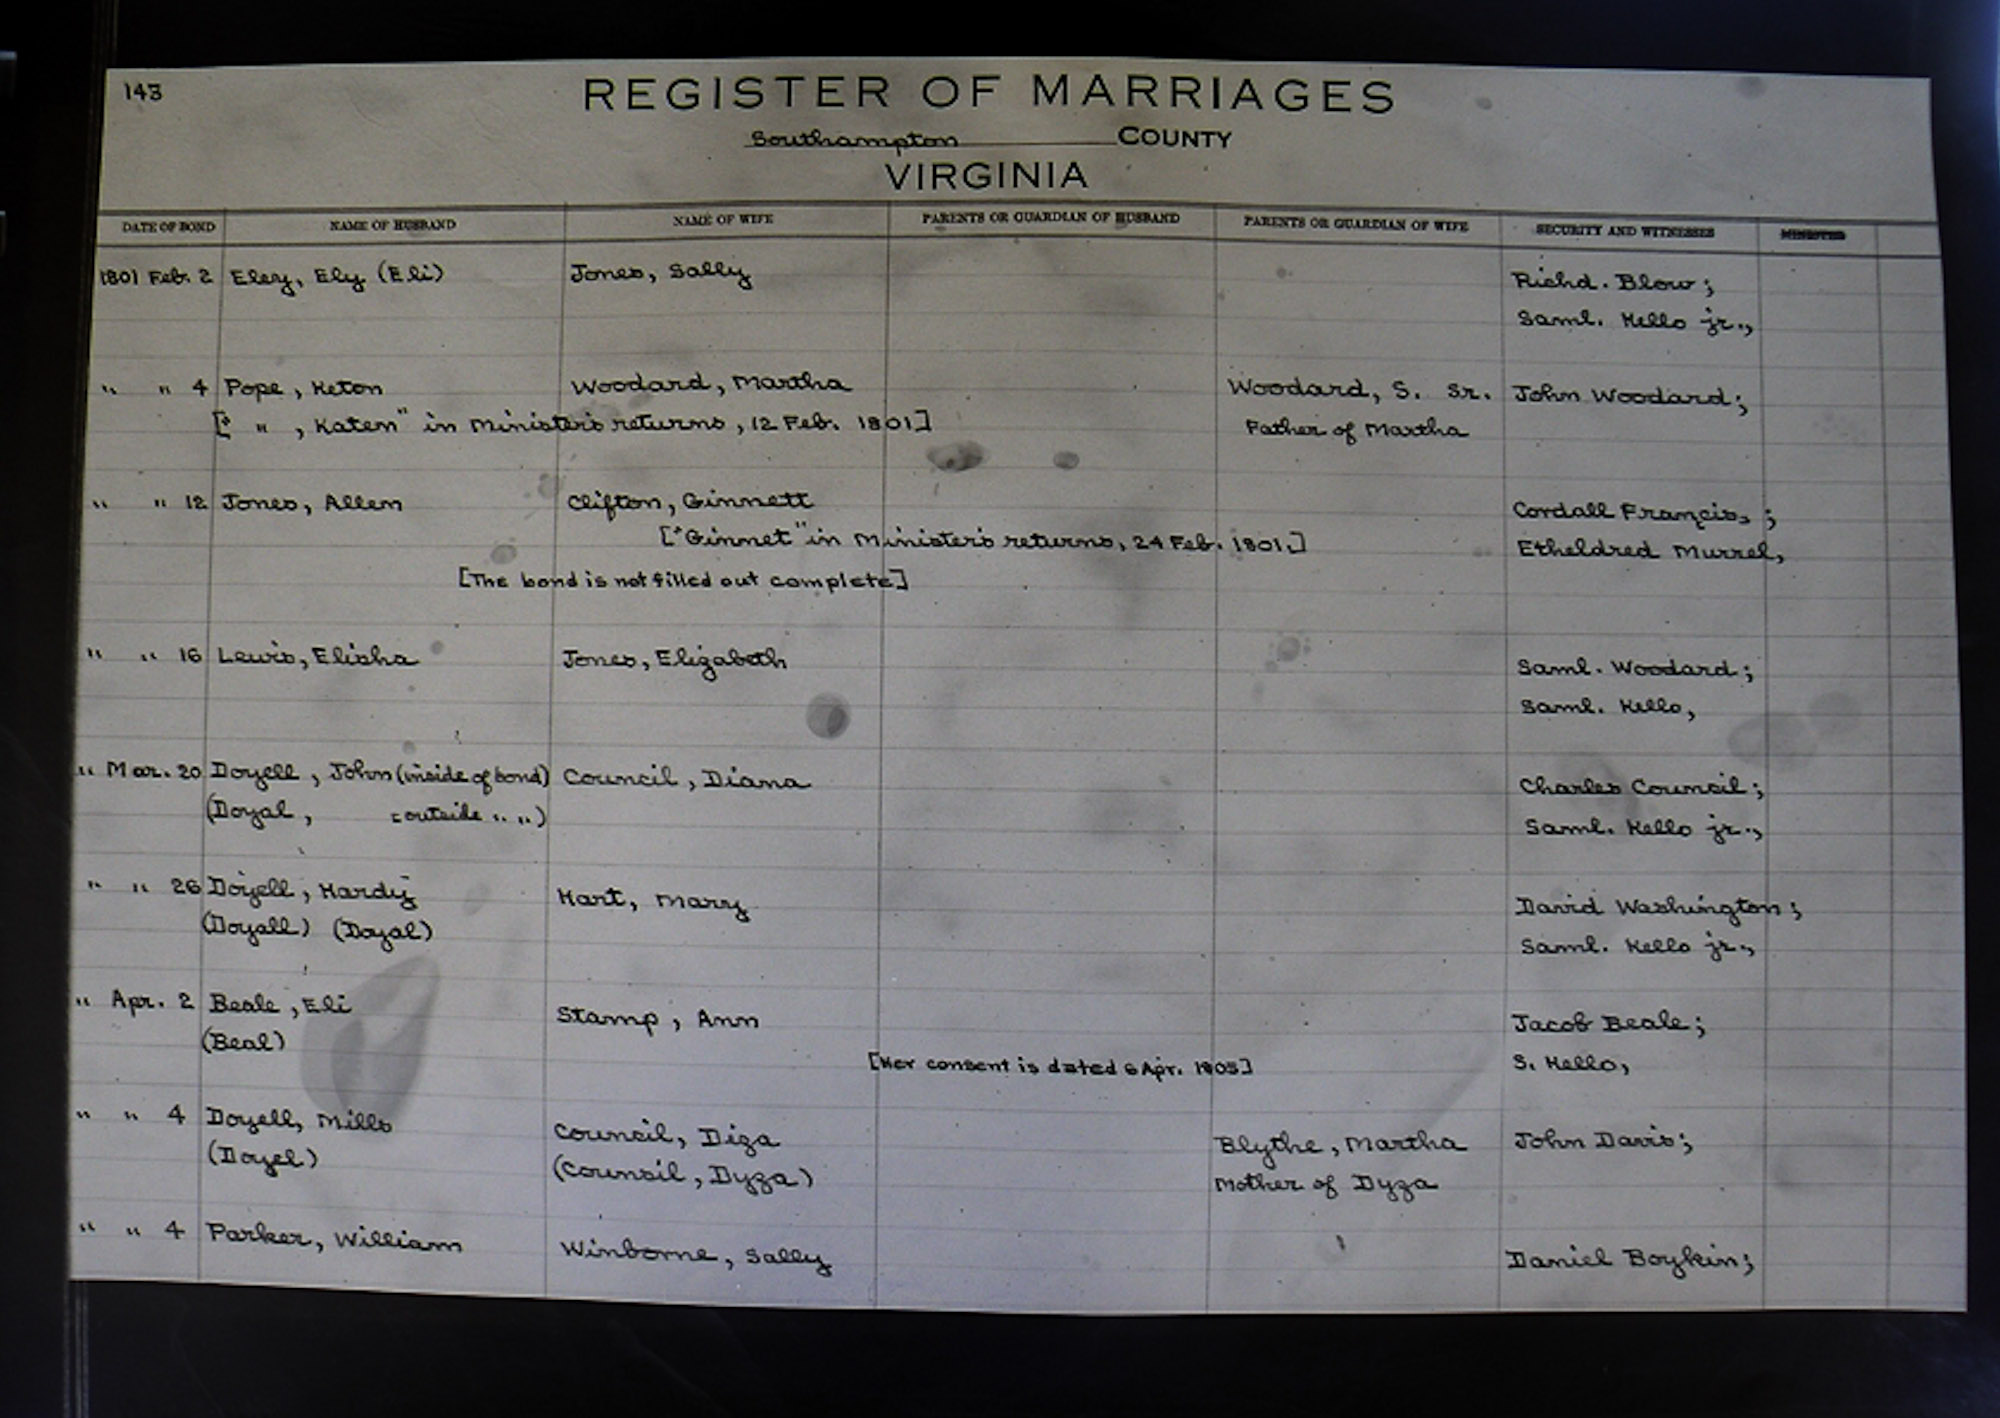 143
REGISTER OF MARRIAGES
Southampton COUNTY
VIRGINIA
DATE OF BOND NAME OF HUSBAND NAME OF WIFE PARENTS OR GUARDIAN OF HUSBAND PARENTS OR GUARDIAN OF WIFE SECURITY AND WITNESSES MINISTER
1801 Feb. 2 Eley, Ely (Eli) Jones, Sally Richd. Blow;
Saml. Kello jr.,
" " 4 Pope, Keton Woodard, Martha Woodard, S. Sr. John Woodard;
[" " , Katen" in Minister's returns, 12 Feb. 1801] Father of Martha
" " 12 Jones, Allen Clifton, Ginnett Cordall Francis, ;
["Ginnet" in Minister's returns, 24 Feb. 1801.] Etheldred Murrel,
[The bond is not filled out complete]
" " 16 Lewis, Elisha Jones, Elizabeth Saml. Woodard;
Saml. Kello,
" Mar. 20 Doyell, John (inside of bond) Council, Diana Charles Council;
(Doyal, outside " ") Saml. Kello jr.,
" " 26 Doyell, Hardy Hart, Mary David Washington;
(Doyall) (Doyal) Saml. Kello jr.,
" Apr. 2 Beale, Eli Stamp, Ann Jacob Beale;
(Beal) [Her consent is dated 6 Apr. 1805] S. Kello,
" " 4 Doyell, Mills Council, Diza Blythe, Martha John Davis;
(Doyel) (Counsil, Dyza) Mother of Dyza
" " 4 Parker, William Winborne, Sally Daniel Boykin;